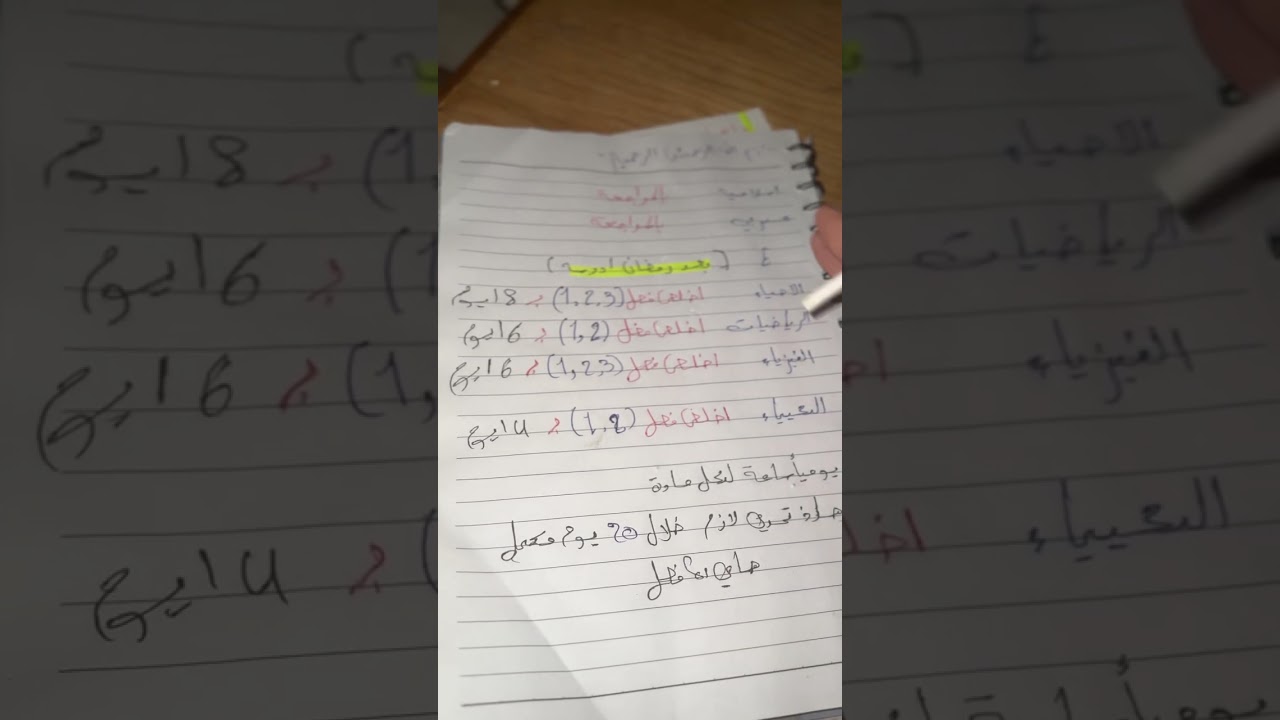 بسم الله الرحمن الرحيم
اسلامية المراجعة
عربي بالمراجعة
E (بعد رمضان ادرسه)
الاحياء اخلص فصل (1,2,3) بـ 18 يوم
الرياضيات اخلص فصل (1,2) بـ 16 يوم
الفيزياء اخلص فصل (1,2,3) بـ 16 يوم
الكيمياء اخلص فصل (1,2) بـ 14 يوم
يومياً ساعة لكل مادة
لازم خلال 20 يوم مكمل
هاي الفصل